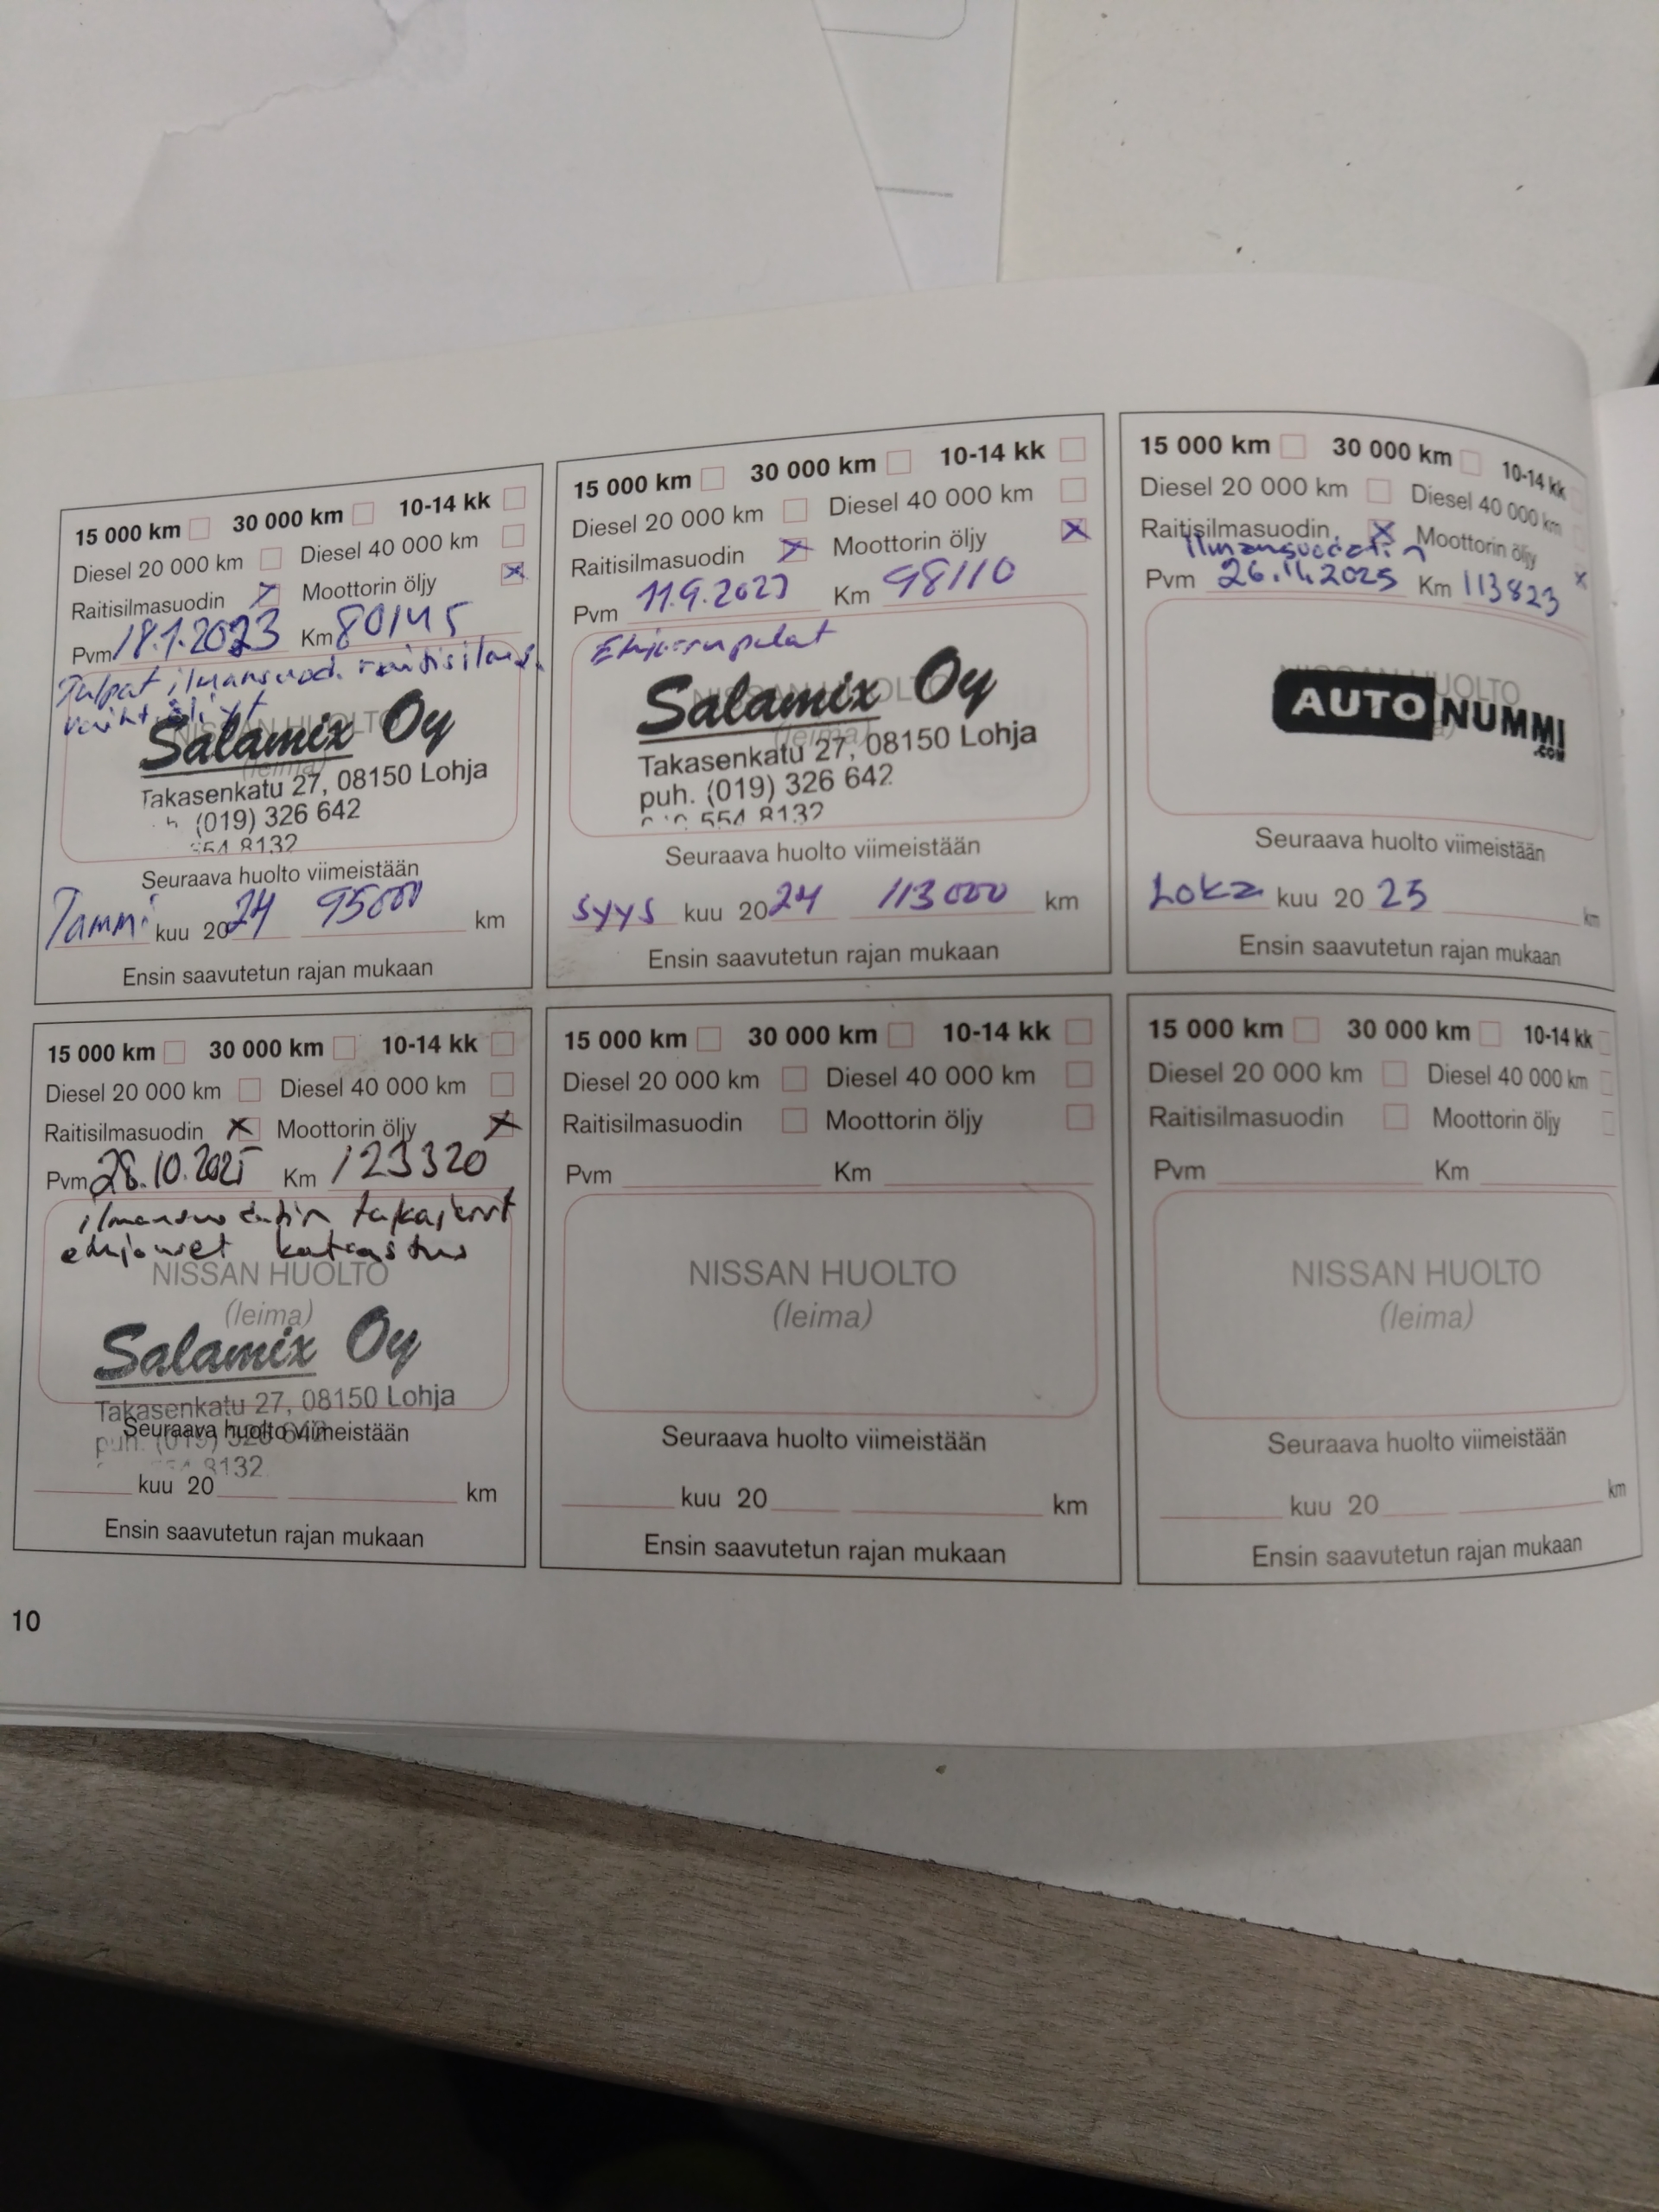 15 000 km 30 000 km 10-14 kk
Diesel 20 000 km Diesel 40 000 km
Raitisilmasuodin Moottorin öljy
Pvm 18.1.2023 Km 80145
Tulpat ilmansuod. raitisilmas.
NISSAN HUOLTO
(leima)
Salamix Oy
Takasenkatu 27, 08150 Lohja
(019) 326 642
554 8132
Seuraava huolto viimeistään
Tammi kuu 2024 95000 km
Ensin saavutetun rajan mukaan
15 000 km 30 000 km 10-14 kk
Diesel 20 000 km Diesel 40 000 km
Raitisilmasuodin Moottorin öljy
Pvm 11.9.2023 Km 98110
Etujarrupalat
NISSAN HUOLTO
(leima)
Salamix Oy
Takasenkatu 27, 08150 Lohja
puh. (019) 326 642
554 8132
Seuraava huolto viimeistään
syys kuu 2024 113000 km
Ensin saavutetun rajan mukaan
15 000 km 30 000 km 10-14 kk
Diesel 20 000 km Diesel 40 000 km
Raitisilmasuodin Moottorin öljy
Ilmansuodatin
Pvm Km 113823
HUOLTO
AUTONUMMI
.COM
Seuraava huolto viimeistään
Loka kuu 20 25 km
Ensin saavutetun rajan mukaan
15 000 km 30 000 km 10-14 kk
Diesel 20 000 km Diesel 40 000 km
Raitisilmasuodin Moottorin öljy
Pvm 28.10.2025 Km 123320
ilmansuodatin takajarrut
NISSAN HUOLTO
(leima)
Salamix Oy
Takasenkatu 27, 08150 Lohja
Seuraava huolto viimeistään
puh. (019) 326 642
8132
kuu 20 km
Ensin saavutetun rajan mukaan
15 000 km 30 000 km 10-14 kk
Diesel 20 000 km Diesel 40 000 km
Raitisilmasuodin Moottorin öljy
Pvm Km
NISSAN HUOLTO
(leima)
Seuraava huolto viimeistään
kuu 20 km
Ensin saavutetun rajan mukaan
15 000 km 30 000 km 10-14 kk
Diesel 20 000 km Diesel 40 000 km
Raitisilmasuodin Moottorin öljy
Pvm Km
NISSAN HUOLTO
(leima)
Seuraava huolto viimeistään
kuu 20 km
Ensin saavutetun rajan mukaan
10